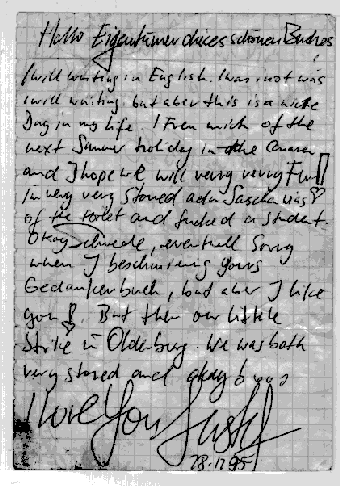 Hello Eigentümer dieses schönen Buches !
I will writing in English. I was not was
I will writing but aber this is a nice
Day in my life. I Freu mich of the
next Summer holiday in the
and I hope we will very verry Fun!
I'm very very stoned adn Sascha was
of the toilet and fucked a student.
Okay Schiede, eventuell Sorry
when I beschmiering yours
Gedankenbuch, but aber I like
you! But then our little
Strike in Oldenburg. We was both
very stoned and okay
I love You
28.12.95